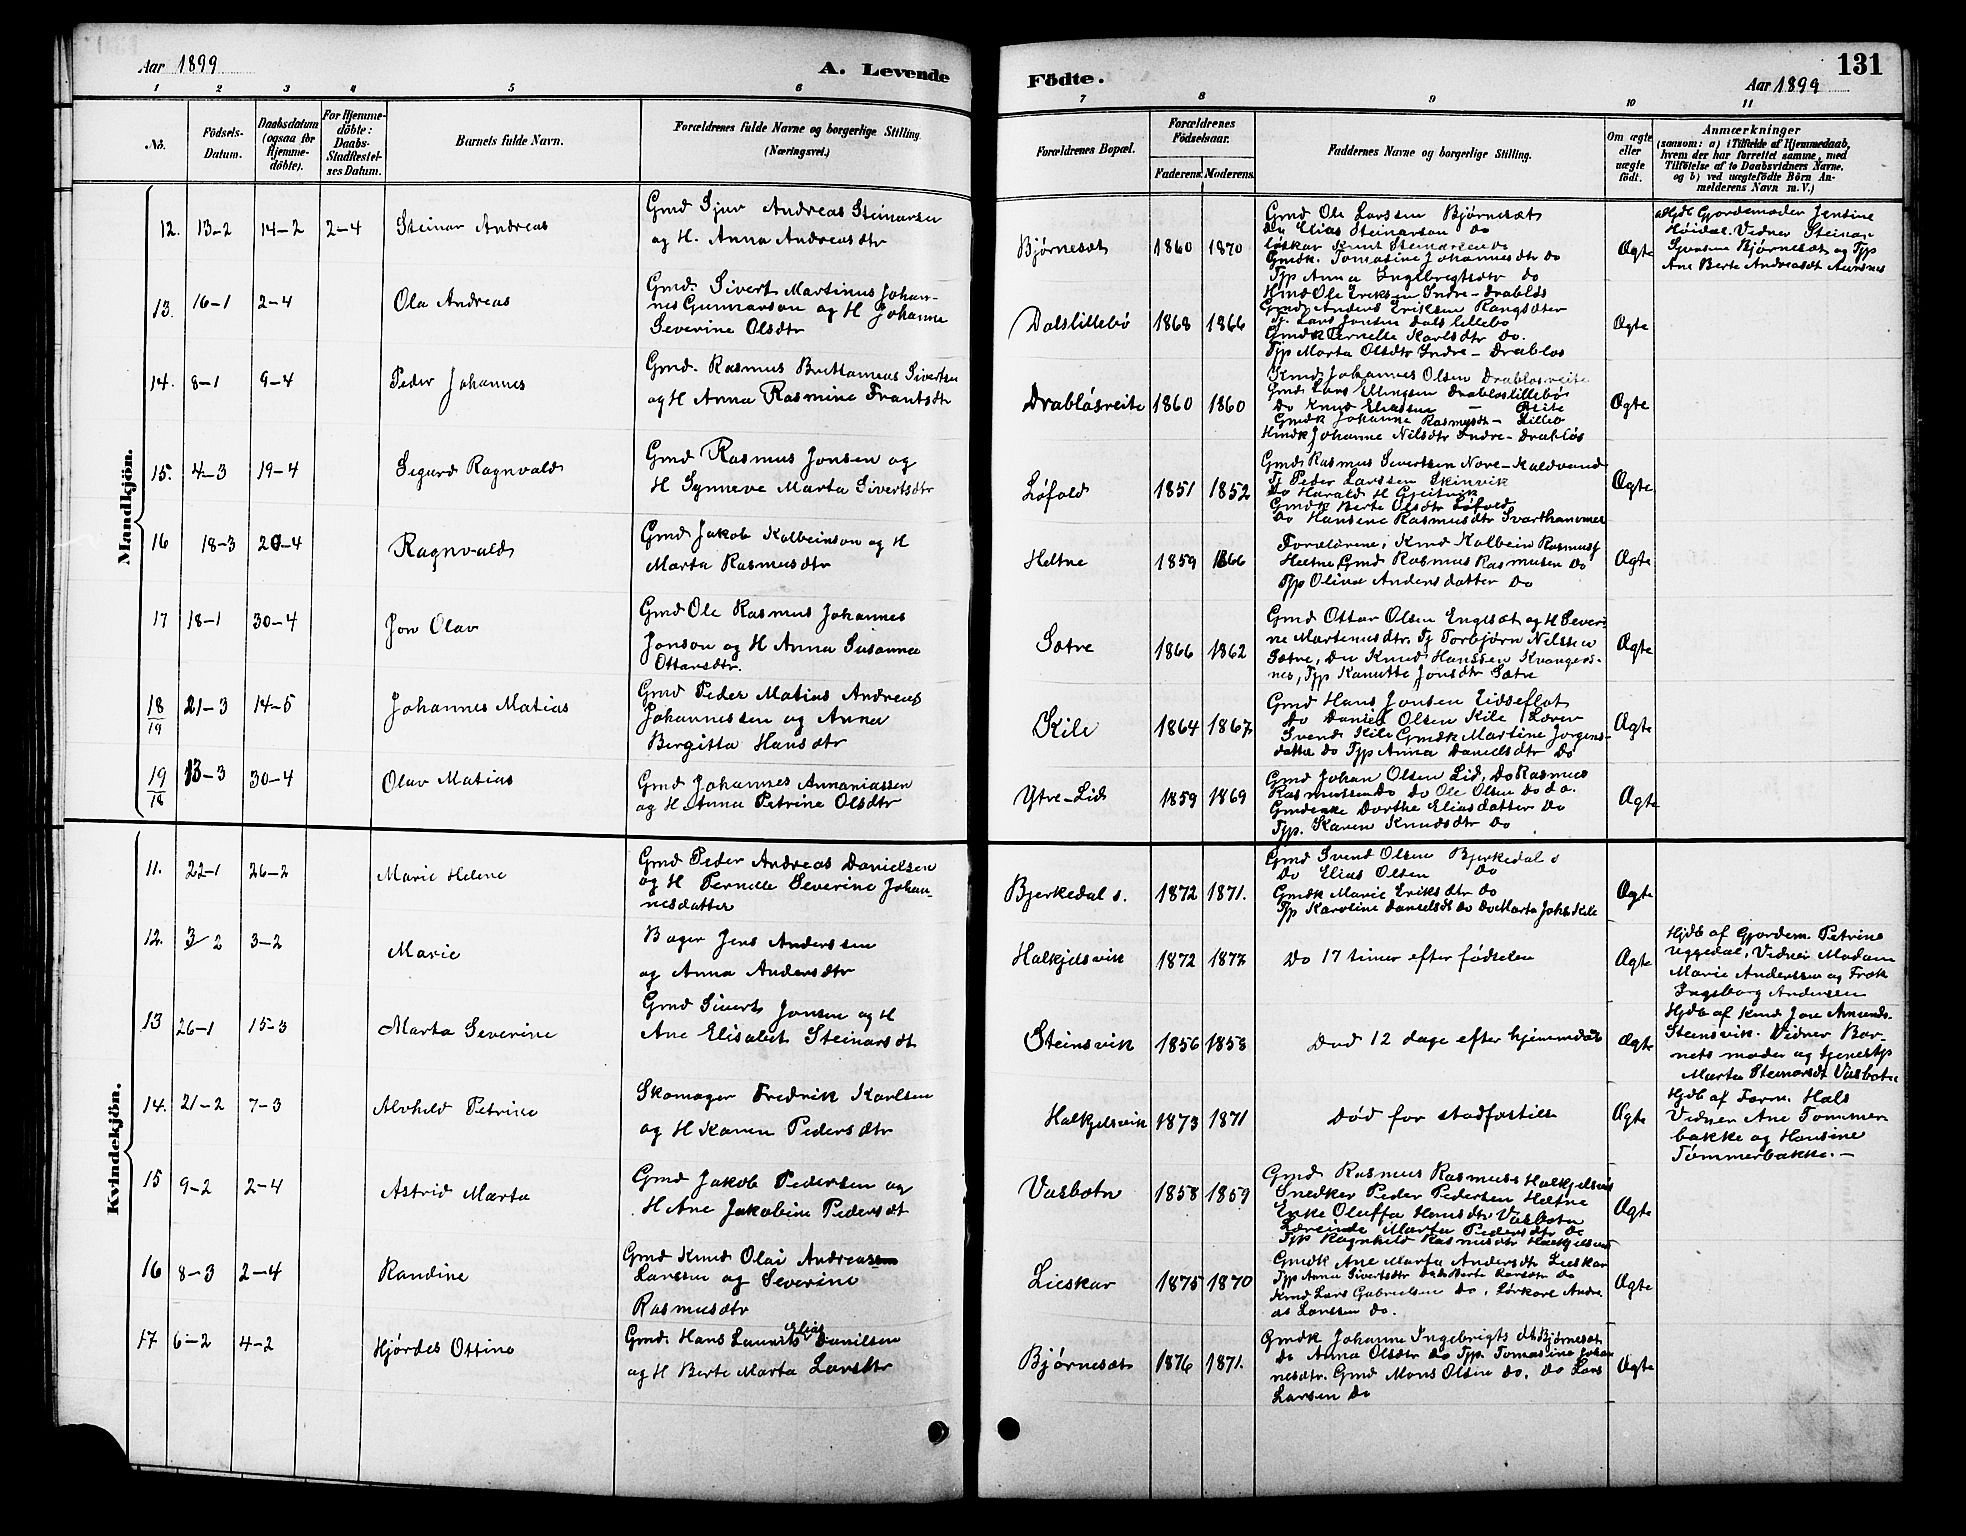 Aar 1899
A. Levende
Födte.
131
Aar 1899
1 2 3 4 5 6 7 8 9 10 11
No.
Födsels-
Datum.
Daabsdatum
(ogsaa for
Hjemme-
döbte).
For Hjemme-
döbte:
Daabs-
Stadfæstel-
ses Datum.
Barnets fulde Navn.
Forældrenes fulde Navne og borgerlige Stilling
(Næringsvei.)
Forældrenes Bopæl.
Forældrenes
Födselsaar.
Faderens Moderens
Faddernes Navne og borgerlige Stilling.
Om ægte
eller
uægte
födt.
Anmærkninger
(saasom: a) i Tilfælde af Hjemmedaab,
hvem der har forrettet samme, med
Tilföielse af to Daabsvidners Navne,
og b) ved uægtefödte Börn An-
melderens Navn m.V.)
Mandkjön.
12. 13-2 14-2 2-4 Steinar Andreas
Gmd Sjur Andreas Steinarsen
og H. Anna Andreasdtr
Bjørnesæt 1860 1870
Gmd Ole Larssen Bjørnesæt
Du Elias Steinarson do
Løskar Knut Steinarsen do
Gmdk. Tomasine Johannesdtr do
Tjp Anna Ingebrigtsdtr do
Ægte
Hjdb Gjordemoder Jentine
Høidal. Vidner Steinar
Sjursen Bjørnesæt og Tjp
Ane Berte Andreasdt Aursnes
13. 16-1 2-4 Ola Andreas
Gmd. Sivert Martinus Johan-
nes Gunnarson og H Johanne
Severine Olsdtr
Dalslillebø 1868 1866
Gmd Ole Eriksen Indre-Drabløs
Gmd Anders Eriksen Rangsæter
Tj. Lars Jonsen Dalslillebø
Gmdk Pernelle Karlsdtr do.
Tjp Marta Olsdtr Indre-Drabløs
Ægte
14. 8-1 9-4 Peder Johannes
Gmd. Rasmus Bertomeus Sivertsen
og H Anna Rasmine Frantsdtr
Drabløsreite 1860 1860
Kmd Johannes Olsen Drabløsreite
Gmd Lars Ellingsen Drabløslillebø
Do Knud Eliassen - Reite
Gmdk Johanne Rasmusdt - Lillebø
Hmdk Johanne Nilsdtr Indre-Drabløs
Ægte
15. 4-3 19-4 Sigurd Ragnvald
Gmd Rasmus Jonsen og
H Synneve Marta Sivertsdtr
Løfold 1851 1852
Gmd Rasmus Sivertsen Nore-Kaldvand
Tj Peder Larssen Skinvik
Do Harald H Gjeitvik
Gmdk Berte Olsdtr Løfold
Do Hansene Rasmusdtr Svarthammer
Ægte
16 18-3 20-4 Ragnvald
Gmd Jakob Kolbeinson og H
Marta Rasmusdtr
Heltne 1859 1866
Forældrene, Kmd Kolbein Rasmus
Heltne, Gmd Rasmus Rasmusen Do
Tjp Oliva Andersdatter Do
Ægte
17 18-1 30-4 Jon Olav
Gmd Ole Rasmus Johannes
Jonson og H Anna Susanna
Ottarsdtr.
Sætre 1866 1862
Gmd Ottar Olsen Engesæt og H Severi-
ne Martenusdtr. Tj Torbjørn Nilssen
Sætre, Du Knud Hanssen Kvangers-
nes, Tjp Kanutte Jonsdtr Sætre
Ægte
18/19 21-3 14-5 Johannes Matias
Gmd Peder Matias Andreas
Johannessen og Anna
Bergitta Hansdtr
Kile 1864 1867
Gmd Hans Jonsen Eidseflot
Do Daniel Olsen Kile Lærer
Svend Kile Gmdk Martine Jørgens-
datter Do Tjp Anna Danielsdtr Do
Ægte
19/18 13-3 30-4 Olav Matias
Gmd Johannes Annaniassen
og H Anna Petrine Olsdtr
Ytre-Lid 1859 1869
Gmd Johan Olsen Lid, Do Rasmus
Rasmussen Do Do Ole Olsen Do do.
Gmdenke Dorthe Eliasdatter Do
Tjp. Karen Knudsdtr Do
Ægte
Kvindekjön.
11. 22-1 26-2 Marie Helene
Gmd Peder Andreas Danielsen
og H Pernelle Severine Johan-
nesdatter
Bjerkedal s. 1872 1871.
Gmd Svend Olsen Bjerkedal s
Do Elias Olsen Do
Gmdk Marie Eriksdtr Do
Tjp Karoline Danielsdt Do Do Marta Johs Kile
Ægte
12. 3/2 3-2 Marie
Bager Jens Anderssen
og Anna Andersdtr
Halkjelsvik 1872 1877
Do 17 timer efter fødselen
Ægte
Hjdb af Gjordem. Petrine
Uggedal, Vidner Madam
Marie Anderssen og Frøk
Ingeborg Andersen
13 26-1 15-3 Marta Severine
Gmd Sivert Jonsen og H
Ane Elisabet Steinarsdt
Steinsvik 1856 1858
Død 12 dage efter hjemmedåb
Ægte
Hjdb af Kmd Jon Amunds.
Steinsvik. Vidner Bar-
nets moder og tjenestp
Marta Steinarsdt Vasbotn
14. 21-2 7-3 Alvheld Petrine
Skomager Fredrik Karlsen
og H Karen Pedersdtr
Halkjelsvik 1873 1871
Død før stadfæstilse
Ægte
Hjdb af Form. Hals
Vidner Ane Tommer
bakke og Hansine
Tømmerbakke. -
15 9-2 2-4 Astrid Marta
Gmd Jakob Pedersen og
H Ane Jakobine Pedersdt
Vasbotn 1858 1859
Gmd Rasmus Rasmuss Halkjelsvik
Snedker Peder Pedersen Heltne
Enke Oluffa Hansdtr Vasbotn
Lærerinde Marta Pedersdtr Do
Tjp Ragnhild Rasmusdtr Halkjelsvik
Ægte
16 8-3 2-4 Randine
Gmd Knud Olai Andreas
Larssen og Severine
Rasmusdtr
Lieskar 1875 1870
Gmdk Ane Marta Andersdtr Lieskar
Tjp Anna Sivertsdtr Do Do Berte Larsdtr Do
Kmd Lars Gabrielsen Do. Lørkarl Andre
as Larssen Do.
Ægte
17 6-2 4-2 Hjórdes Ottine
Gmd. Hans Laurits Elias Danilsen
og H Berte Marta Larsdtr
Bjørnesæt 1876 1871.
Gmdk Johanne Ingebrigtsdt Bjørnesæt
do Anna Olsdtr do Tjp. Tomasine Johan
nesdtr. Gmd Mons Olsen do. Do Lars
Larsen Do
Ægte